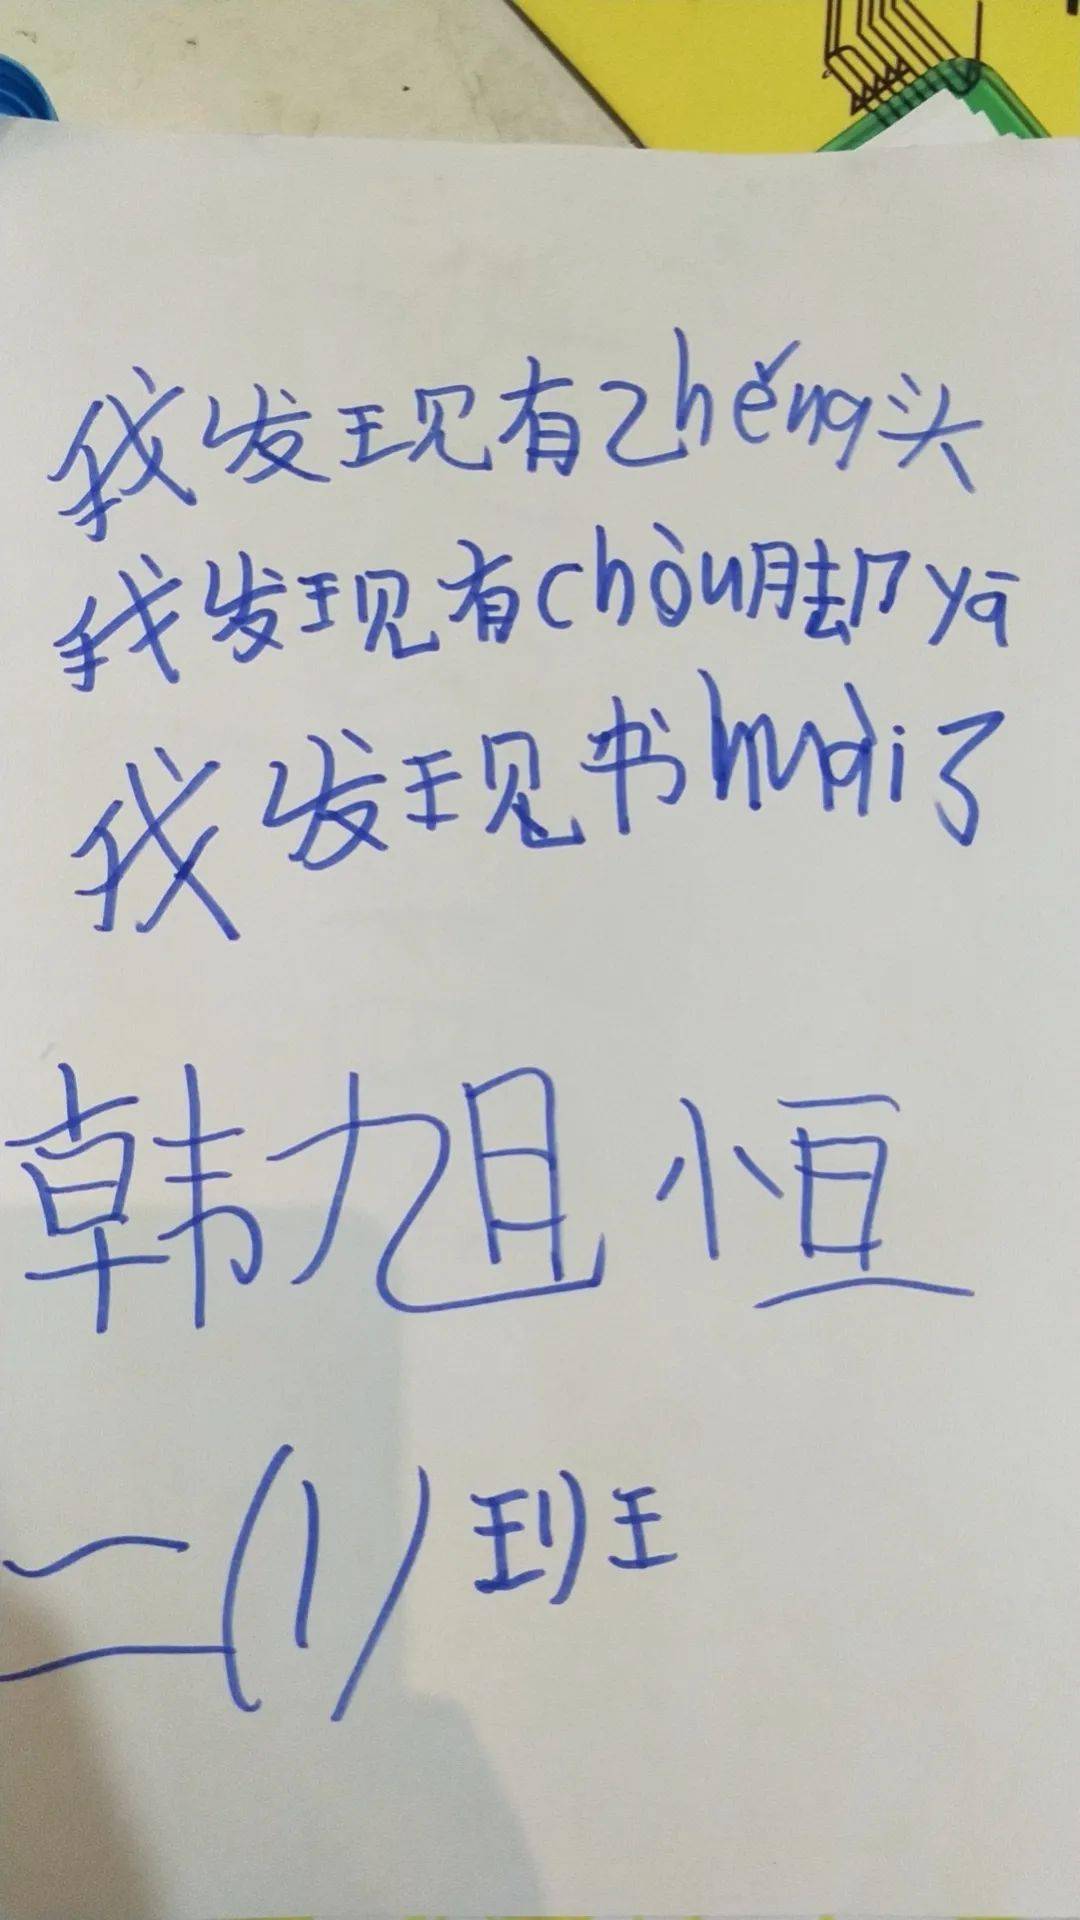 我发现有zhěng头
我发现有chòu脚yā
我发现书huài了
韩旭恒
二(1)班